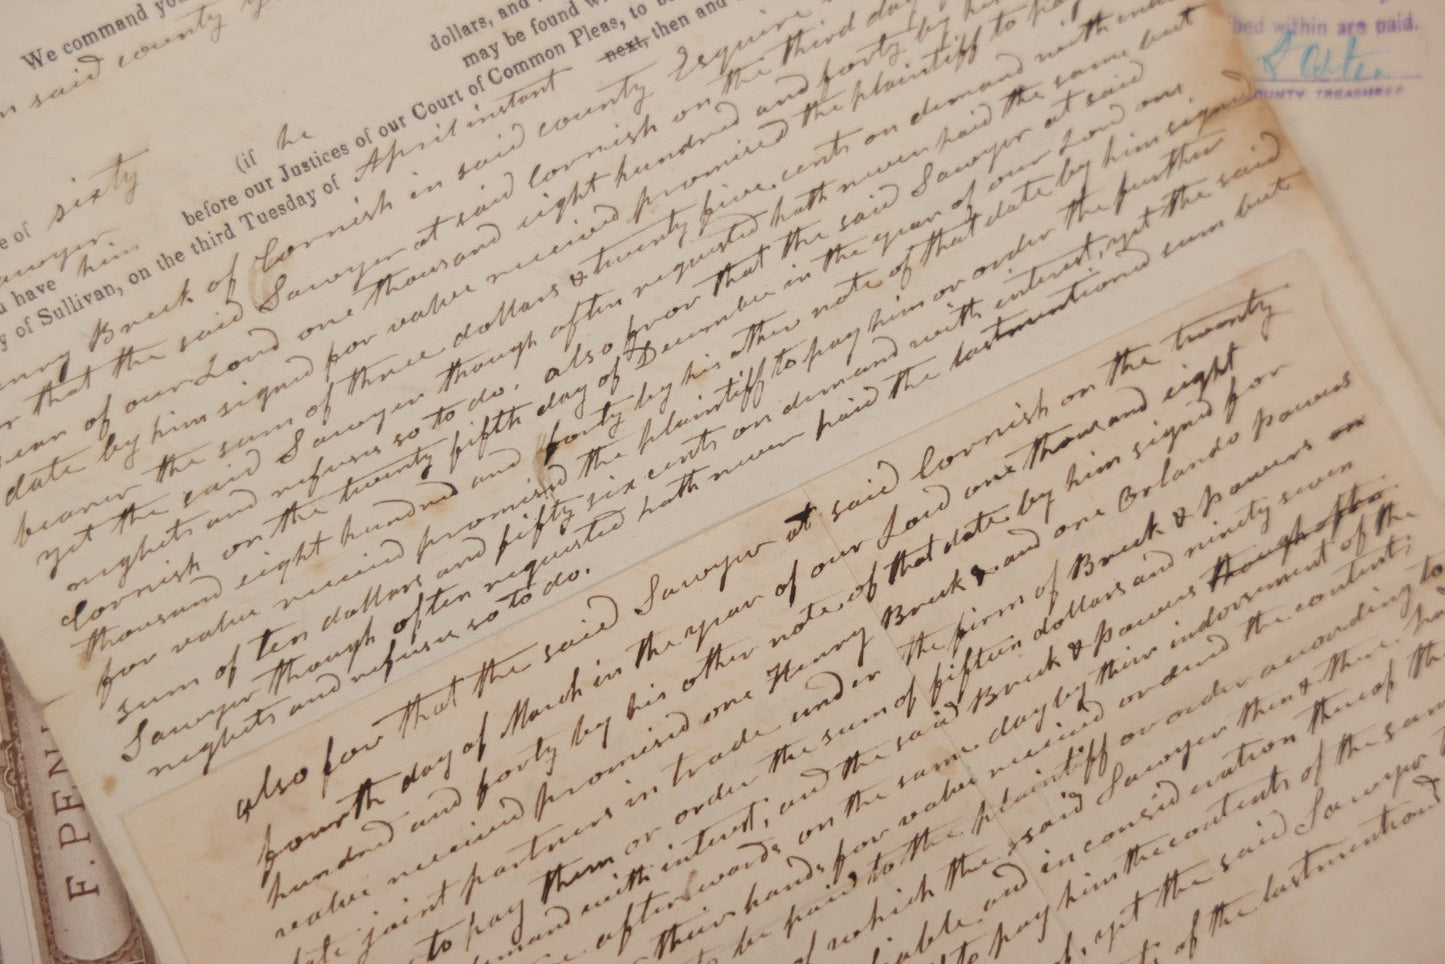 We command you
dollars, and
may be found wi
n said county
before our Justices of our Court of Common Pleas, to be
next, then and
e of sixty
(if he
awyer
d have him
y of Sullivan, on the third Tuesday of April instant
nry Breck of Cornish in said county Esquire
r that the said Sawyer at said Cornish on the third day
year of our Lord one thousand eight hundred and forty by his
date by him signed for value received promised the plaintiff to pay
bearer the sum of three dollars & twenty five cents on demand with
yet the said Sawyer though often requested hath never paid the same but
neglects and refuses so to do. also for that the said Sawyer at said
Cornish on the twenty fifth day of December in the year of our Lord one
thousand eight hundred and forty by his other note of that date by him signed
for value received promised the plaintiff to pay him or order the further
sum of ten dollars and fifty six cents on demand with interest, yet the said
Sawyer though often requested hath never paid the lastmentioned sum but
neglects and refuses so to do.
also for that the said Sawyer at said Cornish on the twenty
fourth day of March in the year of our Lord one thousand eight
hundred and forty by his other note of that date by him signed for
value received promised one Henry Breck & and one Orlando Powers
late joint partners in trade under the firm of Breck & Powers
to pay them or order the sum of fifteen dollars and ninety seven
demand with interest; and the said Breck & Powers though often
afterwards on the same day by their indorsement of the
their hands for value received ordered the contents
to be paid to the plaintiff or order according to
of which the said Sawyer then & there had
liable and in consideration thereof the
to pay him the contents of the same
yet the said Sawyer
of the lastmentioned
bed within are paid.
OUNTY TREASURER
F. PEN